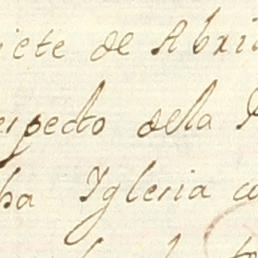 iete de Abril
espedto dela
ha Iglesia co